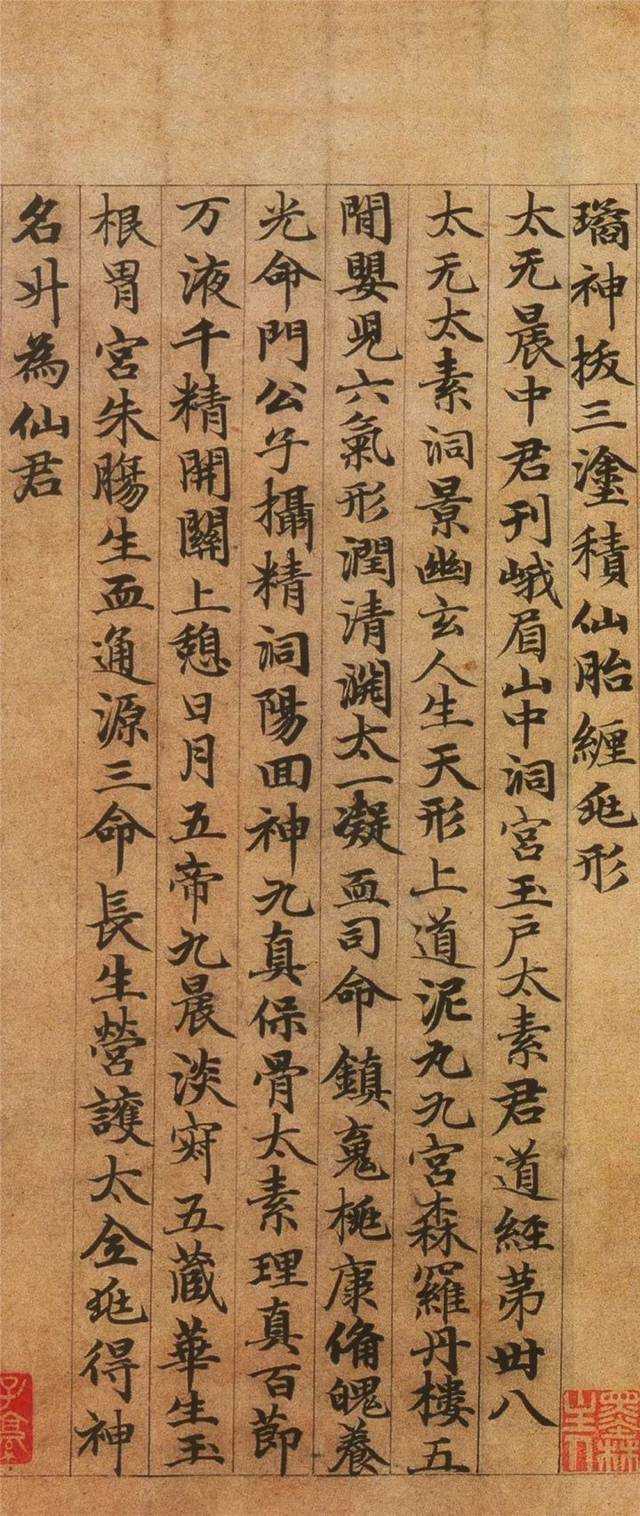 璚神拔三塗積仙胎纏兆形
太无晨中君刊峨眉山中洞宮玉戶太素君道經苐卌八
太无太素洞景幽玄人生天形上道泥丸九宮森羅丹樓五
閒嬰兒六氣形潤清淵太一凝血司命鎮䰟桃康俻魄養
光命門公子攝精洞陽回神九真保骨太素理真百節
万液千精開關上憩日月五帝九晨淡五藏華生玉
根胃宮朱腸生血通源三命長生營護太仺兆得神
名升為仙君